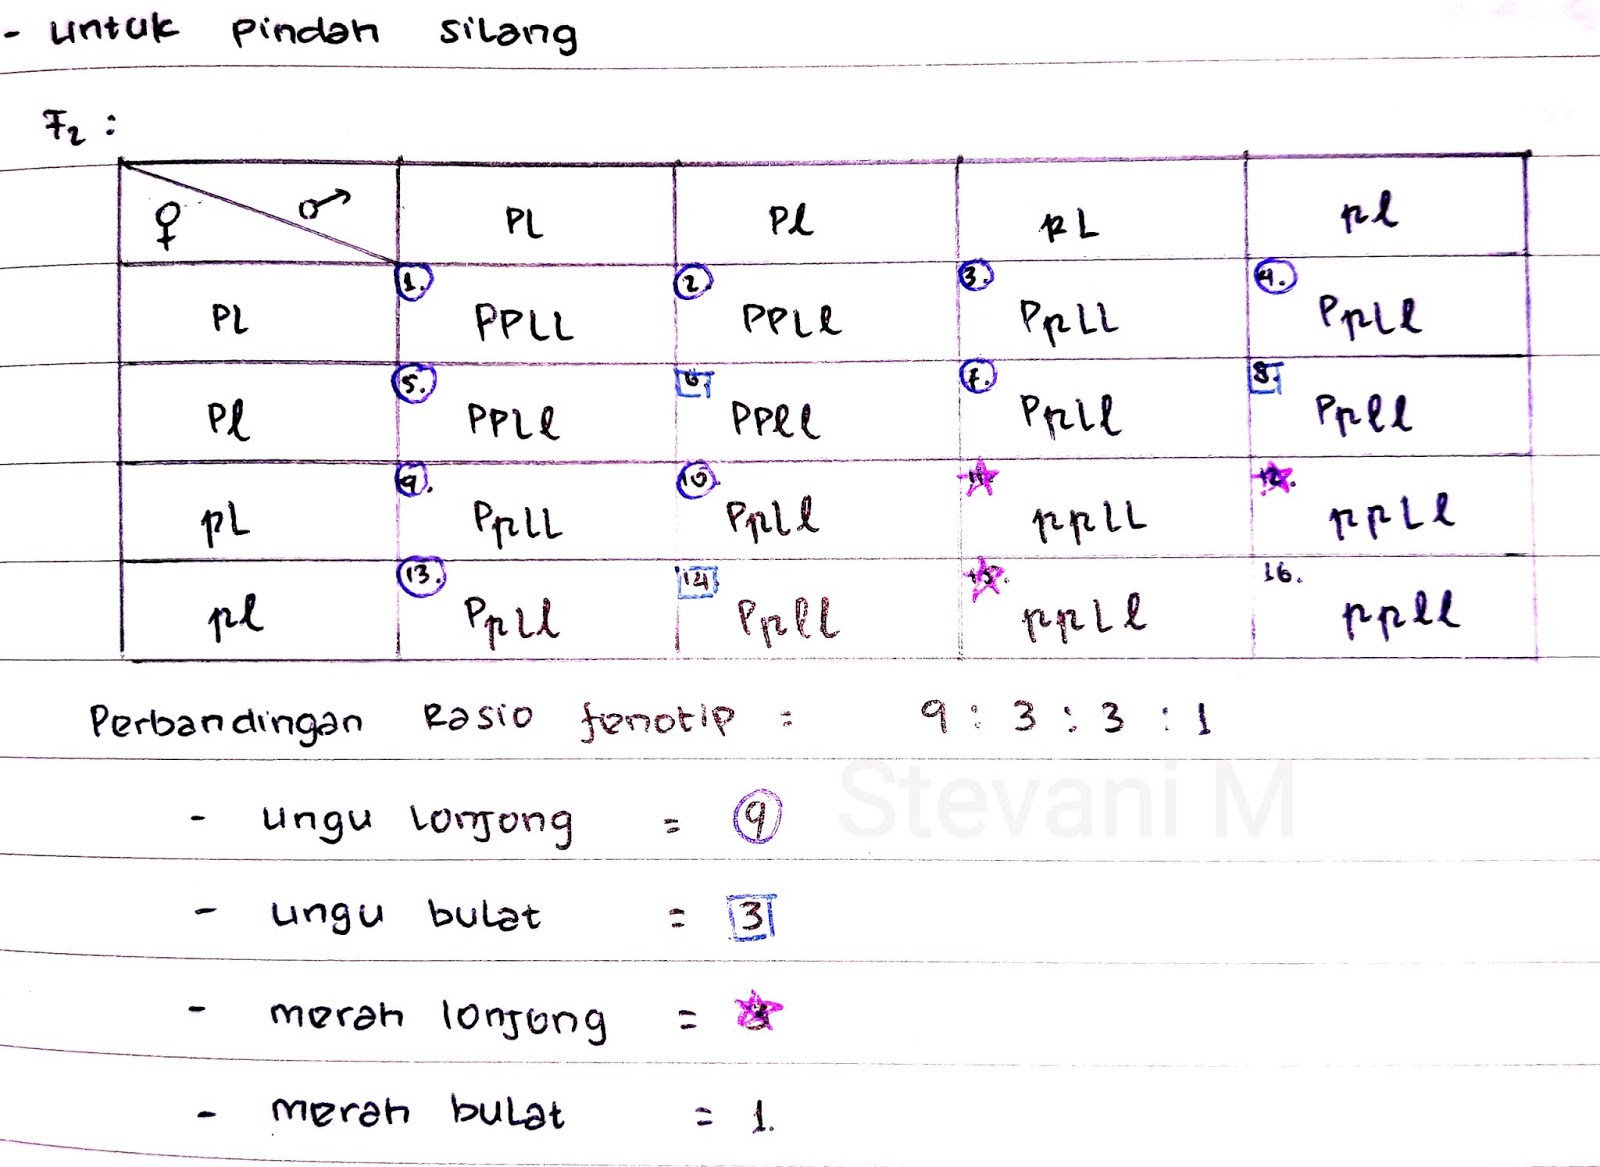 - untuk pindah silang
F2 :
♀ ♂ PL Pl pL pl
1. 2. 3. 4.
PL PPLL PPLl PpLL PpLl
5. 6. 7. 8.
Pl PPLl PPll PpLl Ppll
9. 10. 11. 12.
pL PpLL PpLl ppLL ppLl
13. 14. 15. 16.
pl PpLl Ppll ppLl ppll
Perbandingan Rasio fenotip = 9 : 3 : 3 : 1
Stevani M
- ungu lonjong = 9
- ungu bulat = 3
- merah lonjong = 3
- merah bulat = 1.